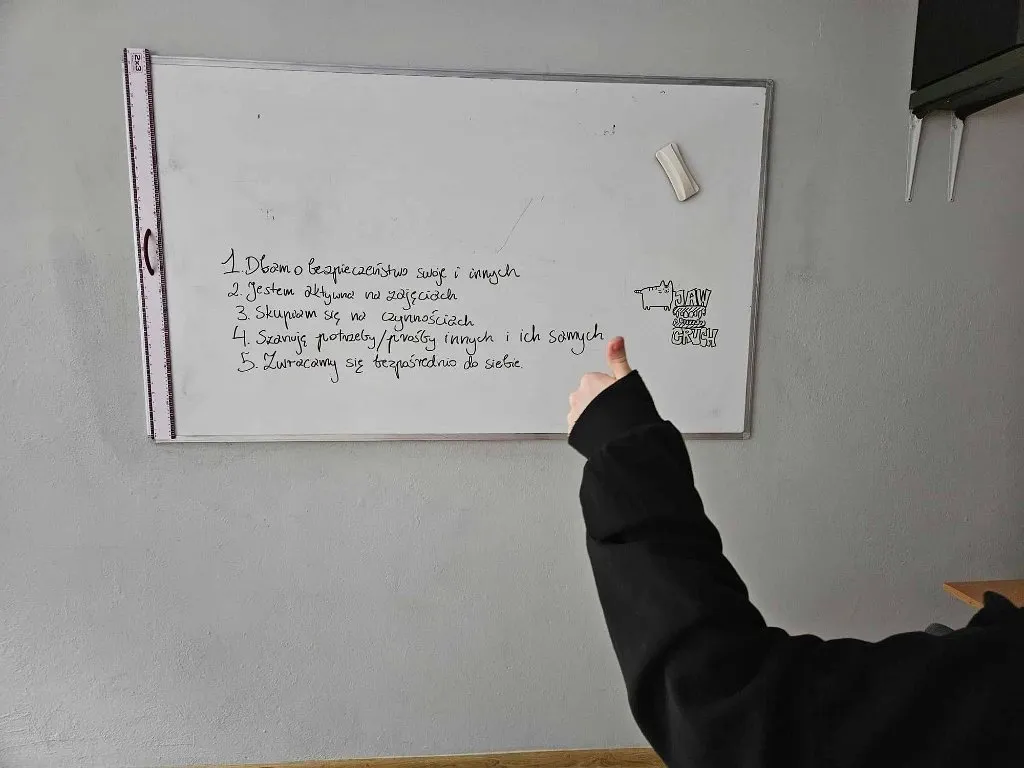 2x3
1. Dbam o bezpieczeństwo swoje i innych
2. Jestem aktywna na zajęciach
3. Skupiam się na czynnościach
4. Szanuję potrzeby/prośby innych i ich samych
5. Zwracamy się bezpośrednio do siebie.
JAW
CRUSH